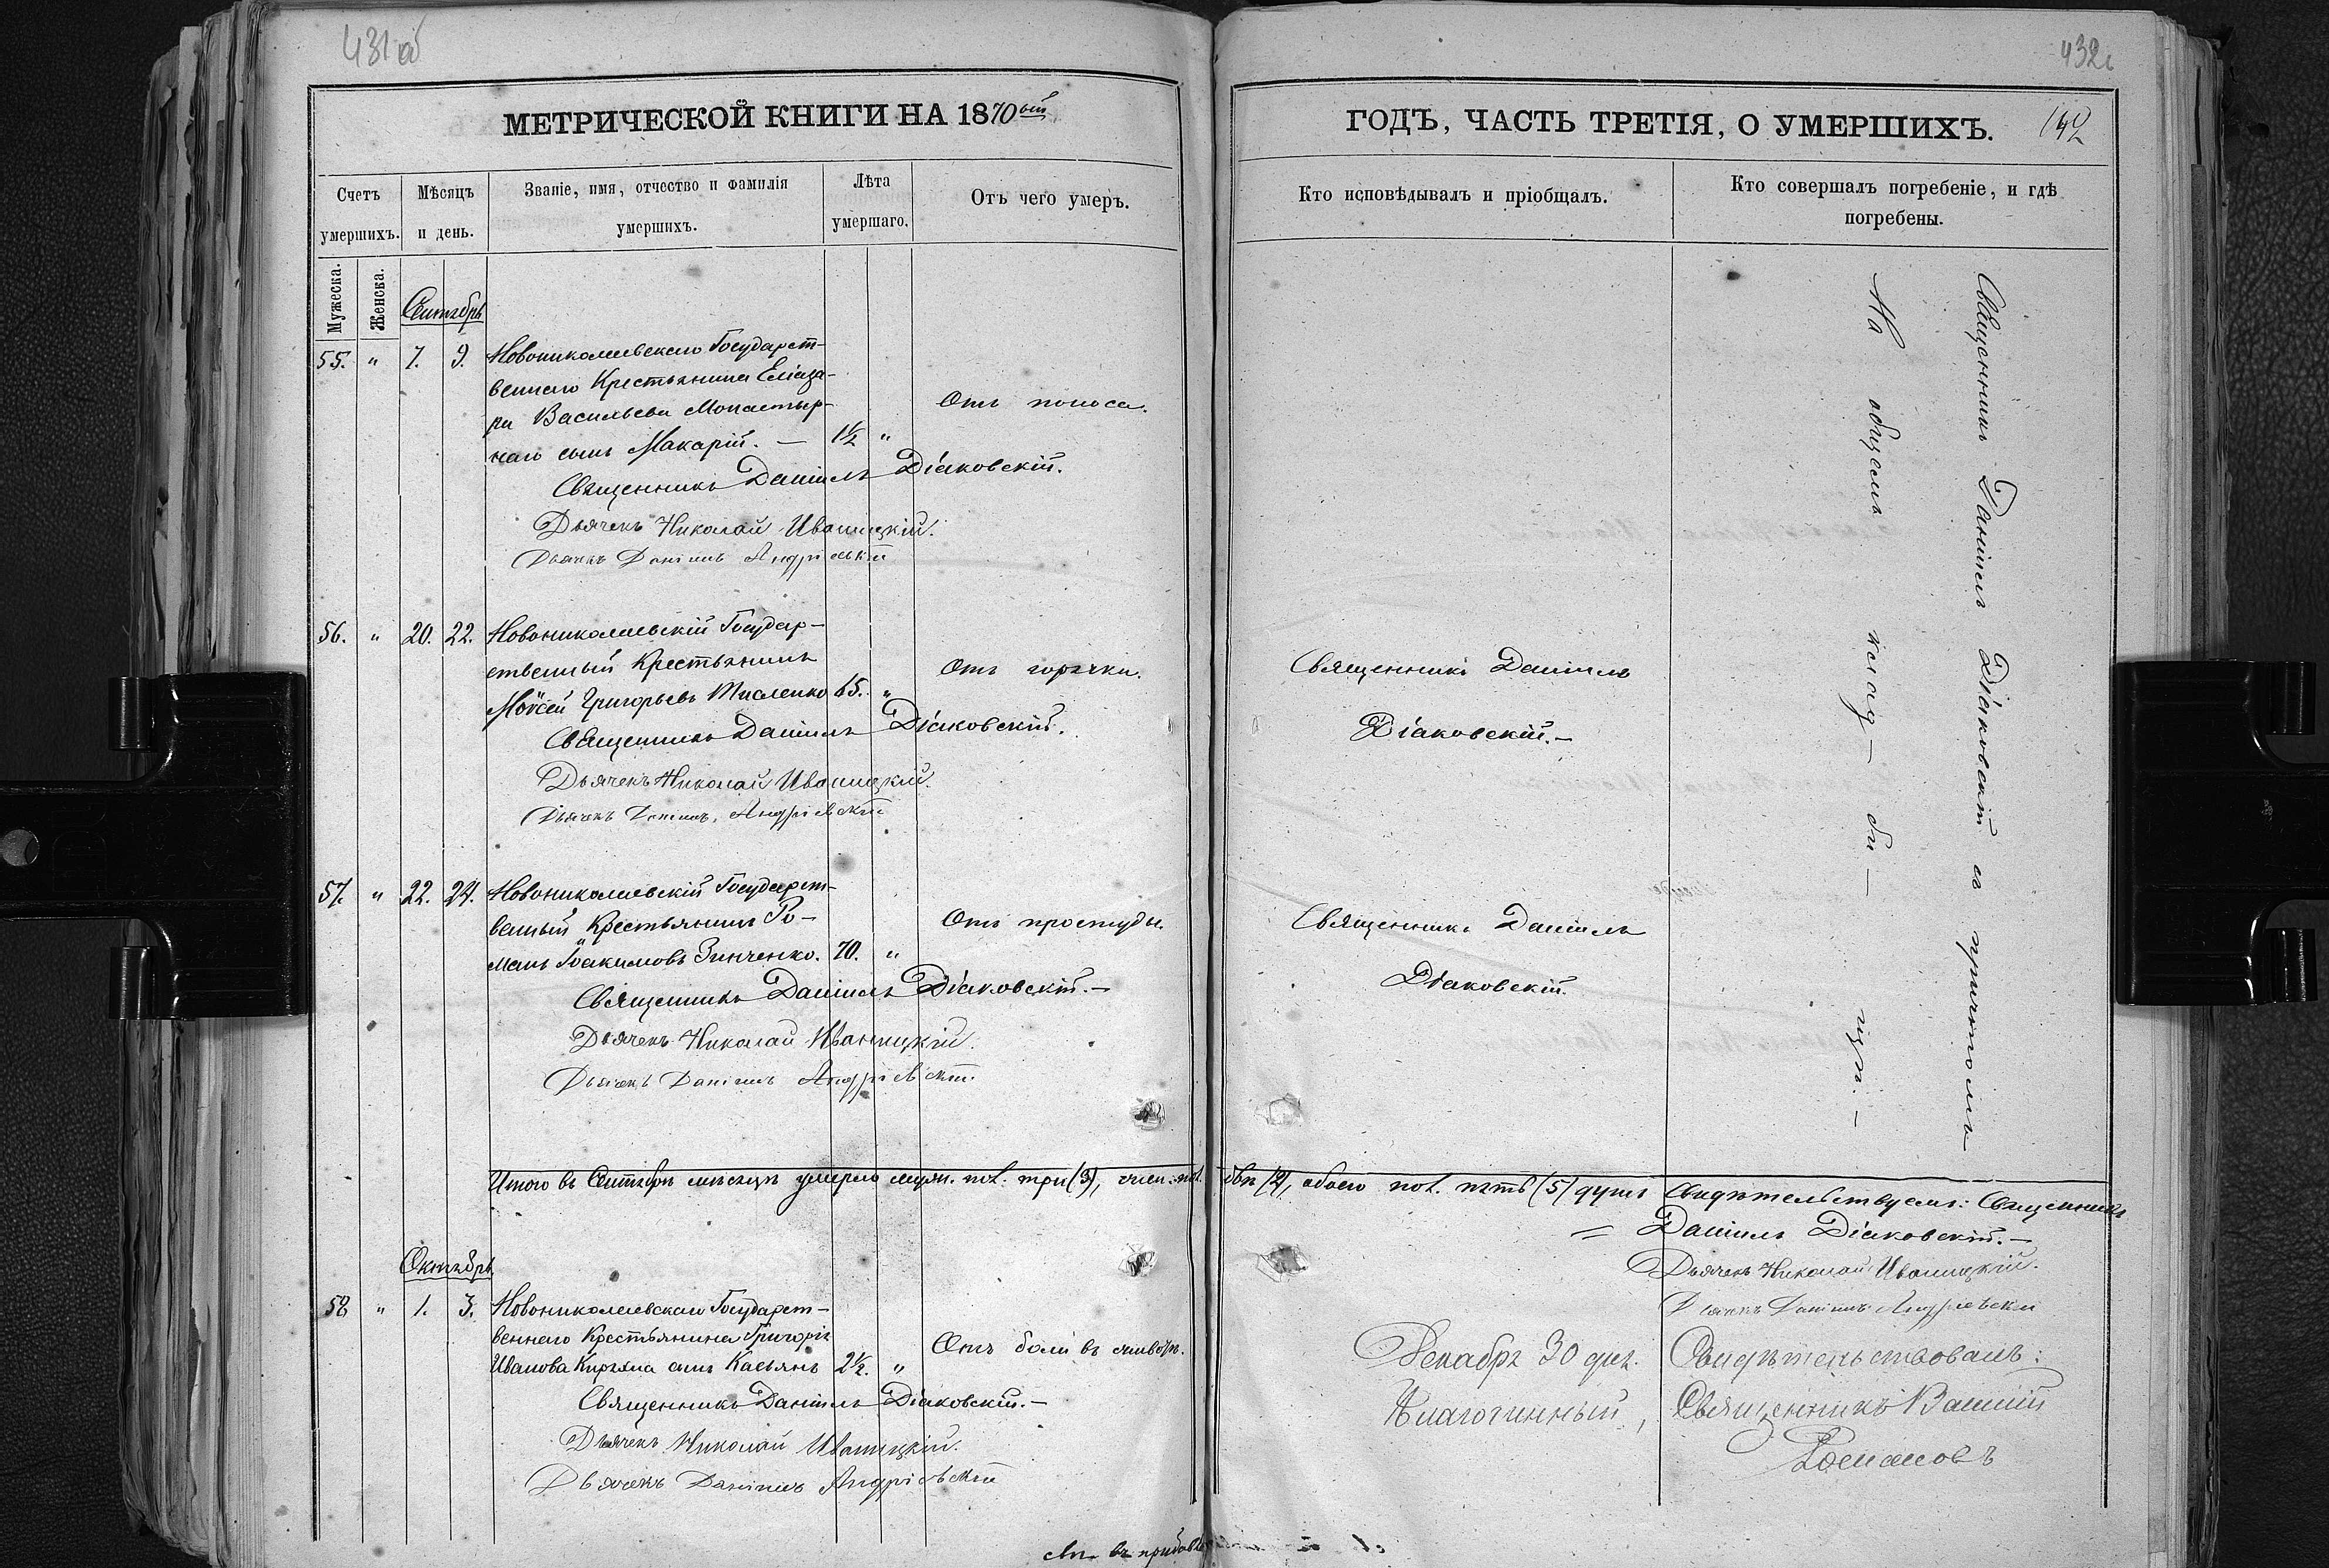 431 об
МЕТРИЧЕСКОЙ КНИГИ НА 1870ый
Счетъ умершихъ.
Мѣсяцъ и день.
Званіе, имя, отчество и фамилія умершихъ.
Лѣта умершаго.
Отъ чего умеръ.
Мужеска.
Женска.
Сентябрь
55. " 7. 9. Новониколаевскаго Государст-
веннаго Крестьянина Еліаза-
ра Васильева Монастыр-
наго сынъ Макарій. — 1½ " Отъ поноса.
Священникъ Даніилъ Діаковскій.
Дьячекъ Николай Иваницкій.
Дьячекъ Даніилъ Андріевскій
56. " 20. 22. Новониколаевскій Государ-
ственный Крестьянинъ
Моѵсей Григорьевъ Тисленко 65. " Отъ горячки.
Священникъ Даніилъ Діаковскій.
Дьячекъ Николай Иваницкій.
Дьячекъ Даніилъ Андріевскій
57. " 22. 24. Новониколаевскій Государст-
венный Крестьянинъ Ро-
манъ Іоакимовъ Зинченко. 70. " Отъ простуды.
Священникъ Даніилъ Діаковскій.—
Дьячекъ Николай Иваницкій.
Дьячекъ Даніилъ Андріевскій.
Итого въ Сентябрѣ мѣсяцѣ умерло муж. пол. три (3), жен. пол.
Октябрь
58 " 1. 3. Новониколаевскаго Государст-
веннаго Крестьянина Григорія
Иванова сынъ Касьянъ 2½. " Отъ боли въ животѣ.
Священникъ Даніилъ Діаковскій.—
Дьячекъ Николай Иваницкій.
Дьячекъ Даніилъ Андріевскій
432
ГОДЪ, ЧАСТЬ ТРЕТІЯ, О УМЕРШИХЪ.
142
Кто исповѣдывалъ и пріобщалъ.
Кто совершалъ погребеніе, и гдѣ погребены.
Священникъ Даніилъ
Діаковскій.—
Священникъ Даніилъ
Діаковскій.
Священникъ Даніилъ Діаковскій съ причтомъ
На общемъ клад- би- щѣ.-
двѣ (2), обоего пол. пять (5) душъ Свидѣтельствуемъ: Священникъ
= Даніилъ Діаковскій.—
Дьячекъ Николай Иваницкій.
Дьячекъ Даніилъ Андріевскій
Декабря 30 дня. Свидѣтельствовалъ:
Благочинный, Священникъ Василій
Романовъ